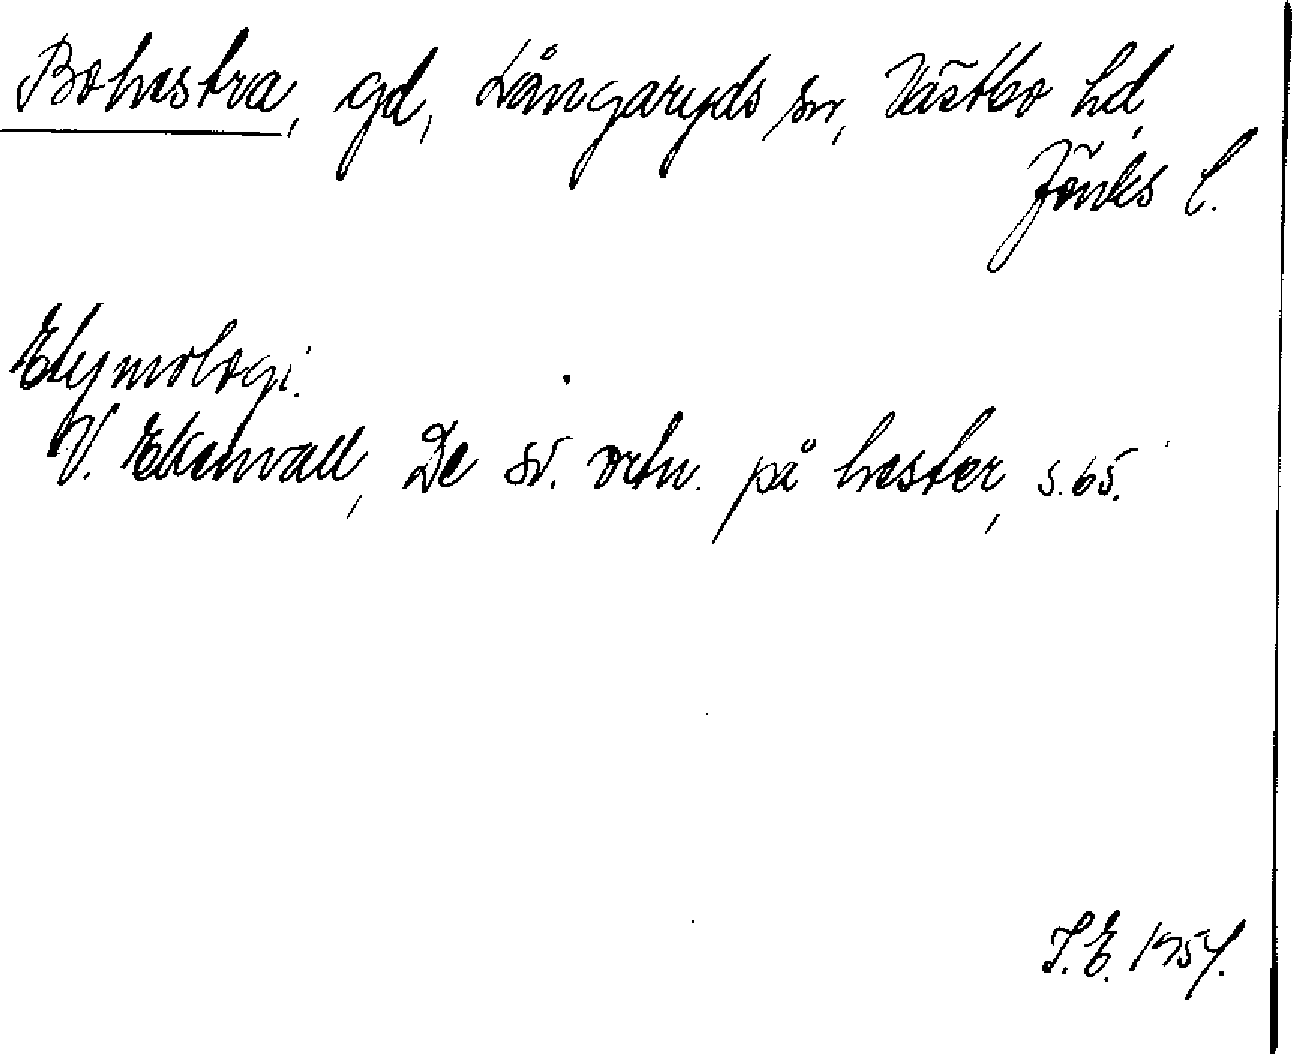 Bohestra, gd, Långaryds sn, Västbo hd,
Jönks l.
Etymologi.
V. Ekenvall, De sv. ortn. på hester, s. 65.
I. E. 1954.